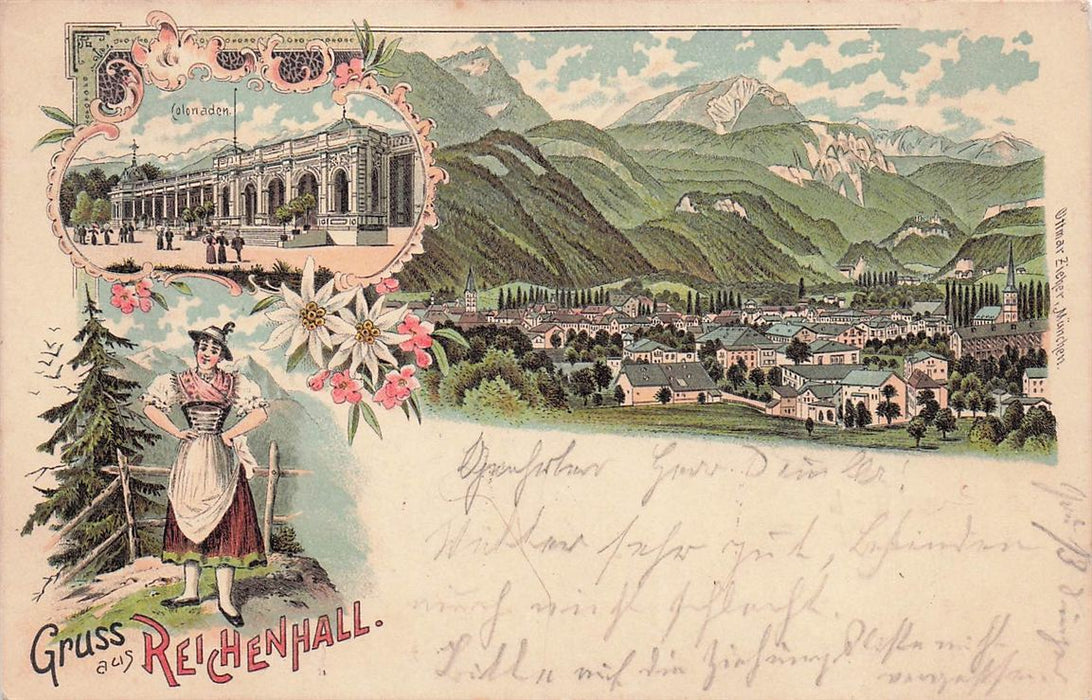 Colonaden.
Ottmar Zieher, München.
Gruss
aus REICHENHALL.
Geehrter Herr
Wetter sehr gut, befinden
auch nicht schlecht
Bitte auf die Ziehungsliste nicht
vergessen